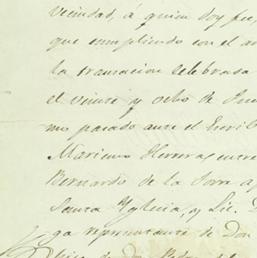 vecindad, á quien doy fee,
que cumpliendo con el
la transacion celebrada
el veinte y ocho de
mo pasado ante el Escrib
Mariano Herrera, entre
Bernardo de la Torre
Santa Yglecia, y Lic. D
ga reprentante de Don
de Don